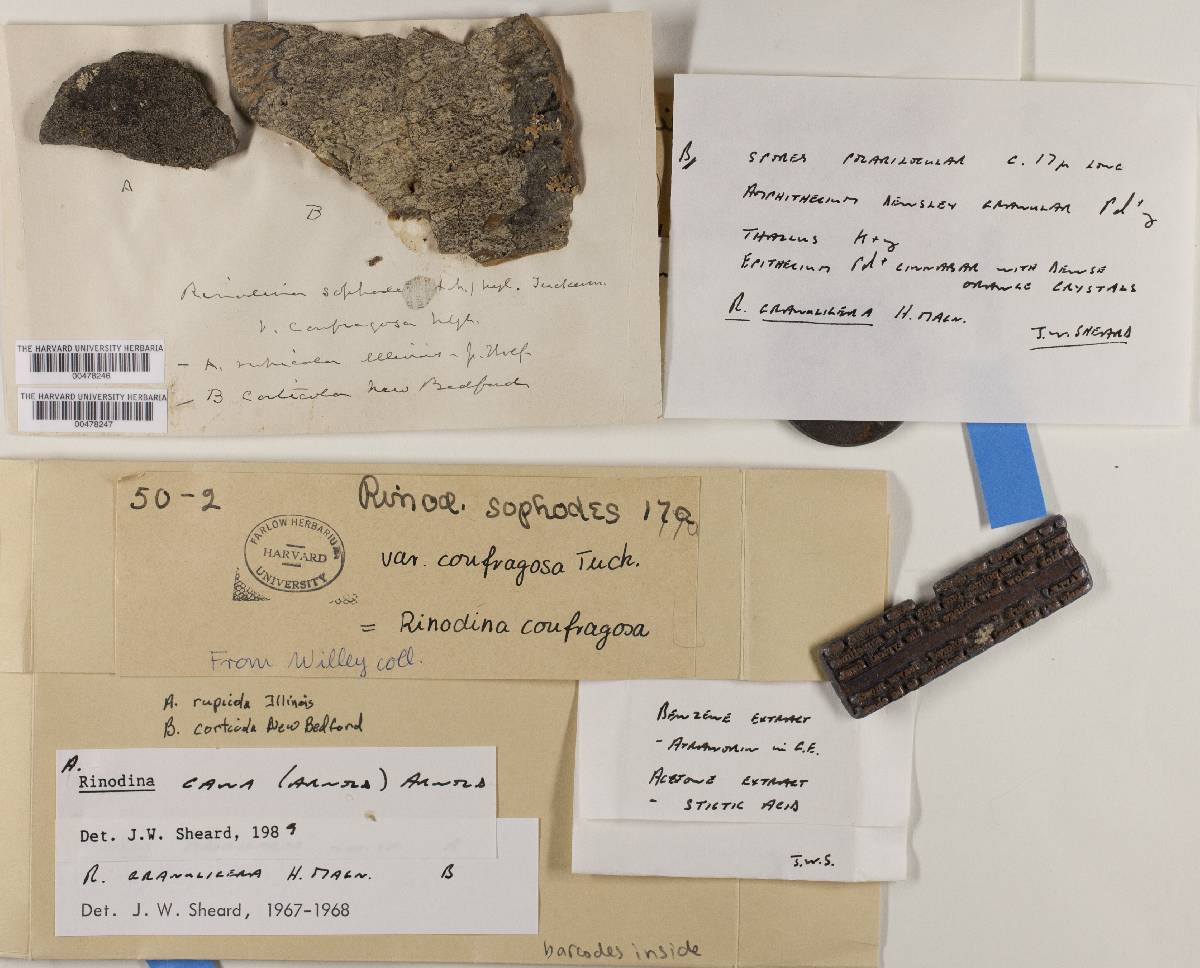 A
B
Rinodina sophodes Ach.) Nyl. Tuckerm.
v. confragosa Nyl.
- A. rupicola Illinois -
- B corticola New Bedford
THE HARVARD UNIVERSITY HERBARIA
00478246
THE HARVARD UNIVERSITY HERBARIA
00478247
B, SPORES POLARILOCULAR C. 17µ LONG
AMPHITHECIUM DENSLEY GRANULAR Pd+y
THALLUS K+y
EPITHECIUM Pd+ CINNABAR WITH DENSE
ORANGE CRYSTALS
R. GRANULIGERA H. MAGN.
J.W. SHEARD
50-2
Rinod. sophodes 17a
FARLOW HERBARIUM
HARVARD
UNIVERSITY
var. confragosa Tuck.
= Rinodina confragosa
From Willey coll.
A. rupicola Illinois
B. corticola New Bedford
A.
Rinodina CANA (ARNOLD) ARNOLD
Det. J.W. Sheard, 1989
R. GRANULIGERA H. MAGN. B
Det. J. W. Sheard, 1967-1968
BENZENE EXTRACT
- ATRANORIN in G.E.
ACETONE EXTRACT
- STICTIC ACID
J.W.S.
barcodes inside